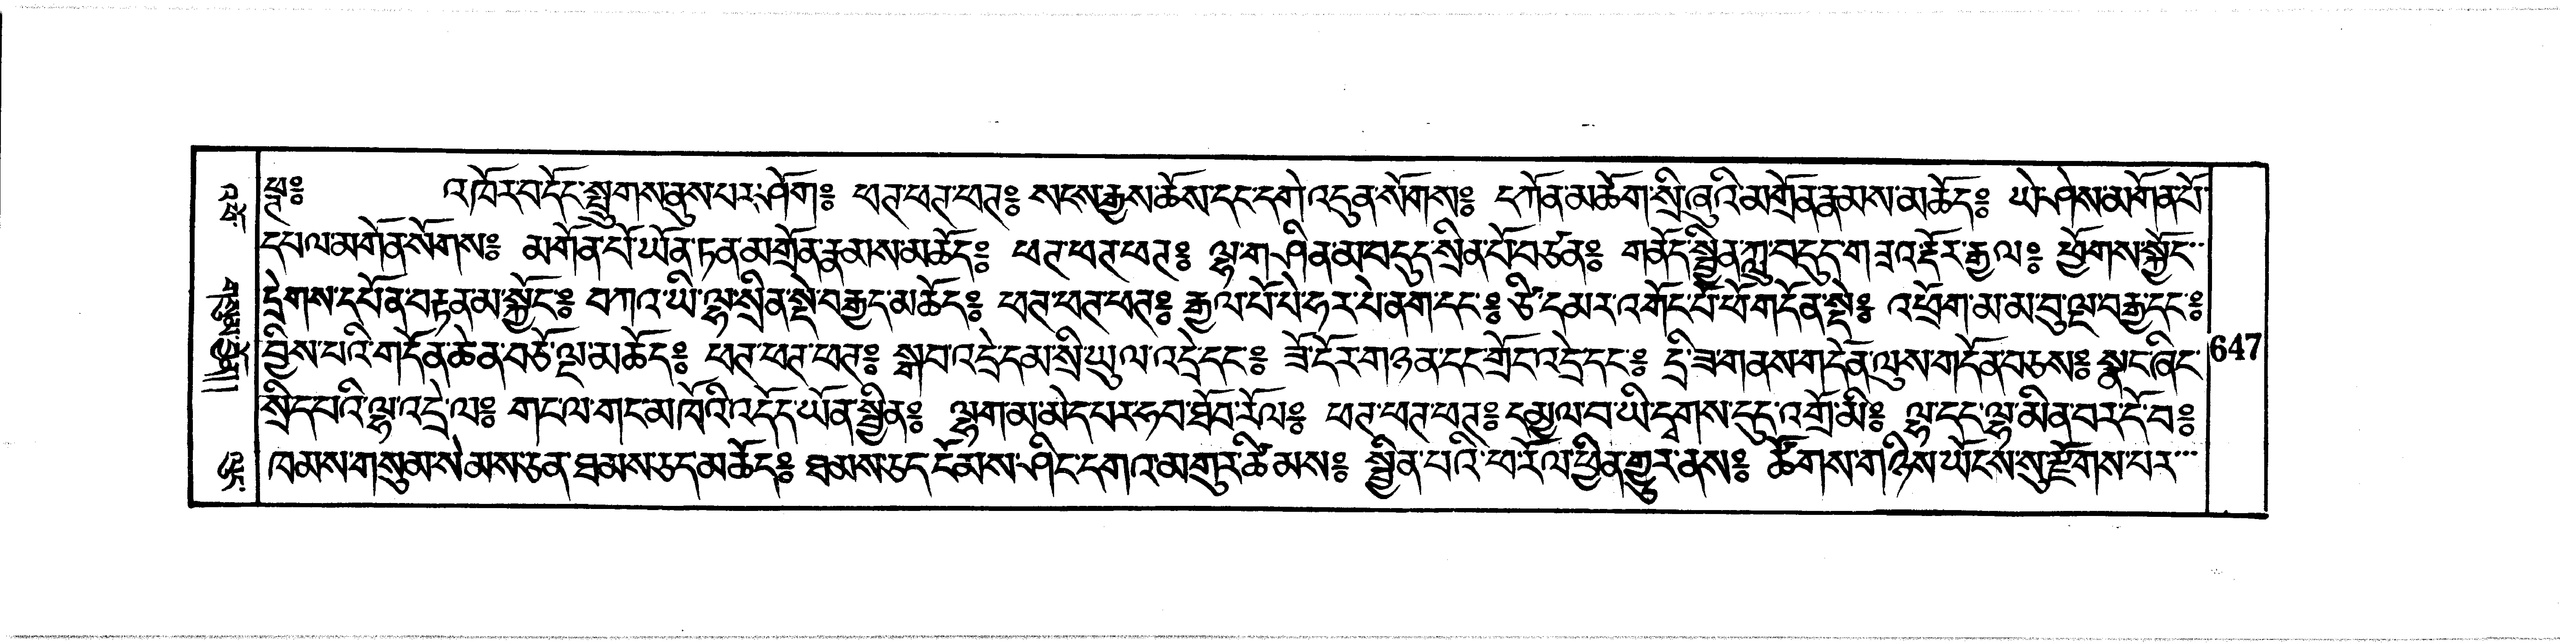 ཕཊ༔ འཁོར་བ་དོང་སྤྲུགས་ནུས་པར་ཤོག༔ ཕཊ་ཕཊ་ཕཊ༔ སངས་རྒྱས་ཆོས་དང་དགེ་འདུན་སོགས༔ དཀོན་མཆོག་སྲི་ཞུའི་མགྲོན་རྣམས་མཆོད༔ ཡེ་ཤེས་མགོན་པོ་
དཔལ་མགོན་སོགས༔ མགོན་པོ་ཡོན་ཏན་མགྲོན་རྣམས་མཆོད༔ ཕཊ་ཕཊ་ཕཊ༔ ལྷ་གཤིན་མ་བདུད་སྲིན་པོ་བཙན༔ གནོད་སྦྱིན་ཀླུ་བདུད་གཟའ་རྡོར་རྒྱལ༔ ཕྱོགས་སྐྱོང་
དྲེགས་དཔོན་བརྟན་མ་སྐྱོང༔ བཀའ་ཡི་ལྷ་སྲིན་སྡེ་བརྒྱད་མཆོད༔ ཕཊ་ཕཊ་ཕཊ༔ རྒྱལ་པོ་པེ་ཧར་པེ་ནག་དང༔ ཙི་དམར་འགོང་པོ་ཕོ་གདོན་སྡེ༔ འཕྲོག་མ་མ་བུ་ལྔ་བརྒྱ་དང༔
བྱིས་པའི་གདོན་ཆེན་བཅོ་ལྔ་མཆོད༔ ཕཊ་ཕཊ་ཕཊ༔ སྒབ་འདྲེ་དམ་སྲི་ཡུལ་འདྲེ་དང༔ ཟོ་དོར་གཉན་དང་གྲོང་འདྲེ་དང༔ དྲི་ཟ་གནས་གདོན་ལུས་གདོན་བཅས༔ སྣང་ཞིང་
སྲིད་པའི་ལྷ་འདྲེ་ལ༔ གང་ལ་གང་མཁོའི་འདོད་ཡོན་སྦྱིན༔ ལྷག་མ་མེད་པར་ཧབ་ཐོབ་རོལ༔ ཕཊ་ཕཊ་ཕཊ༔ དམྱལ་བ་ཡི་དྭགས་དུད་འགྲོ་མི༔ ལྷ་དང་ལྷ་མིན་བར་དོ་བ༔
ཁམས་གསུམ་སེམས་ཅན་ཐམས་ཅད་མཆོད༔ ཐམས་ཅད་ངོམས་ཤིང་དགའ་མགུར་ཚིམས༔ སྦྱིན་པའི་ཕ་རོལ་ཕྱིན་གྱུར་ནས༔ ཚོགས་གཉིས་ཡོངས་སུ་རྫོགས་པར་
647